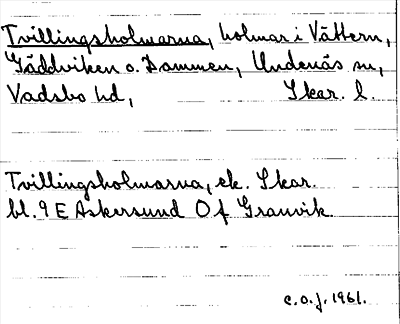 Tvillingsholmarna, holmar i Vättern,
Gäddviken o. Dammen, Undenäs sn,
Vadsbo hd, Skar. l.
Tvillingsholmarna, ek. Skar.
bl. 9 E Askersund O f Granvik.
c.o.j. 1961.